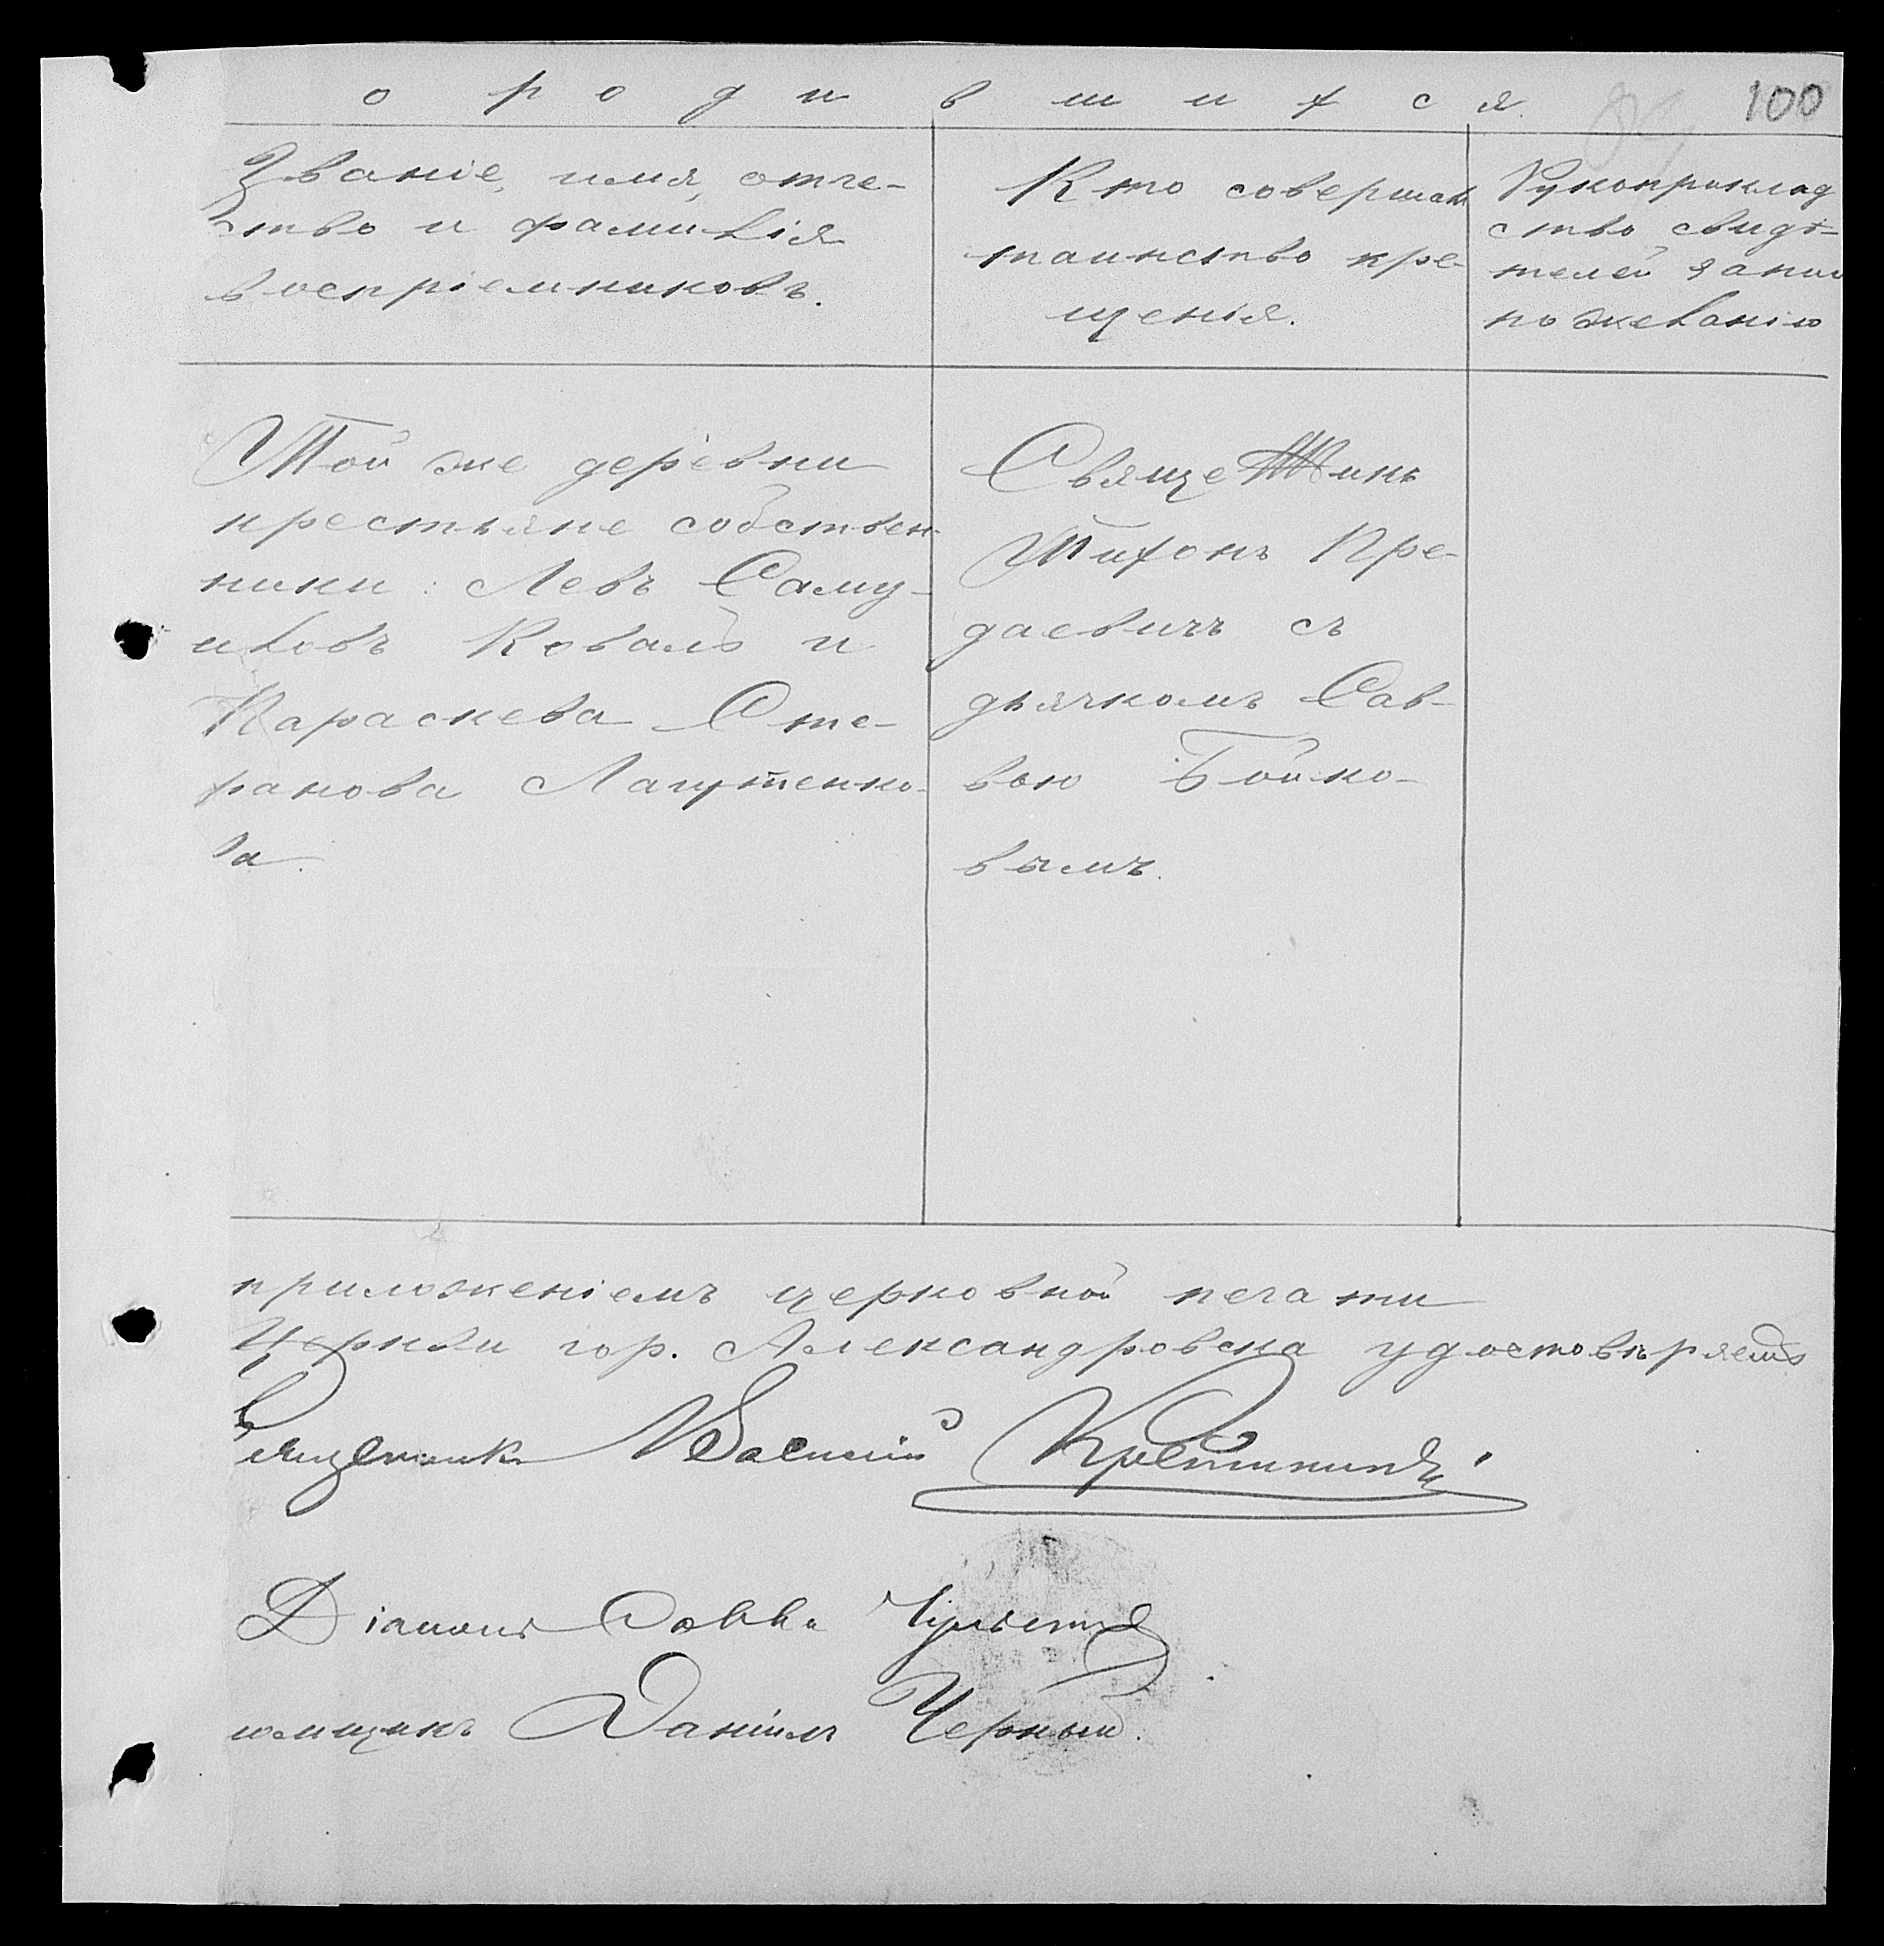 о родившихся.
100
Званіе, имя, отче-
ство и фамилія
воспріемниковъ.
Кто совершал
таинство кре-
щенія.
Рукоприклад
ство свидѣ-
телей записи
по желанію
Той же деревни
крестьяне собствен-
ники: Левъ Саму-
иловъ Коваль и
Параскева Сте-
фанова Лагутенко-
ва.
Священникъ
Тихонъ Пре-
даевичъ съ
дьячкомъ Сав-
вою Бойко-
вымъ.
приложеніемъ церковной печати
Церкви гор. Александровска удостовѣряетъ
Священникъ Василій
Діаконъ Савва
Даніилъ Черный.